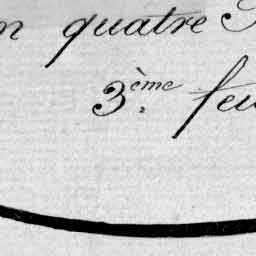 n quatre
3ème. feu